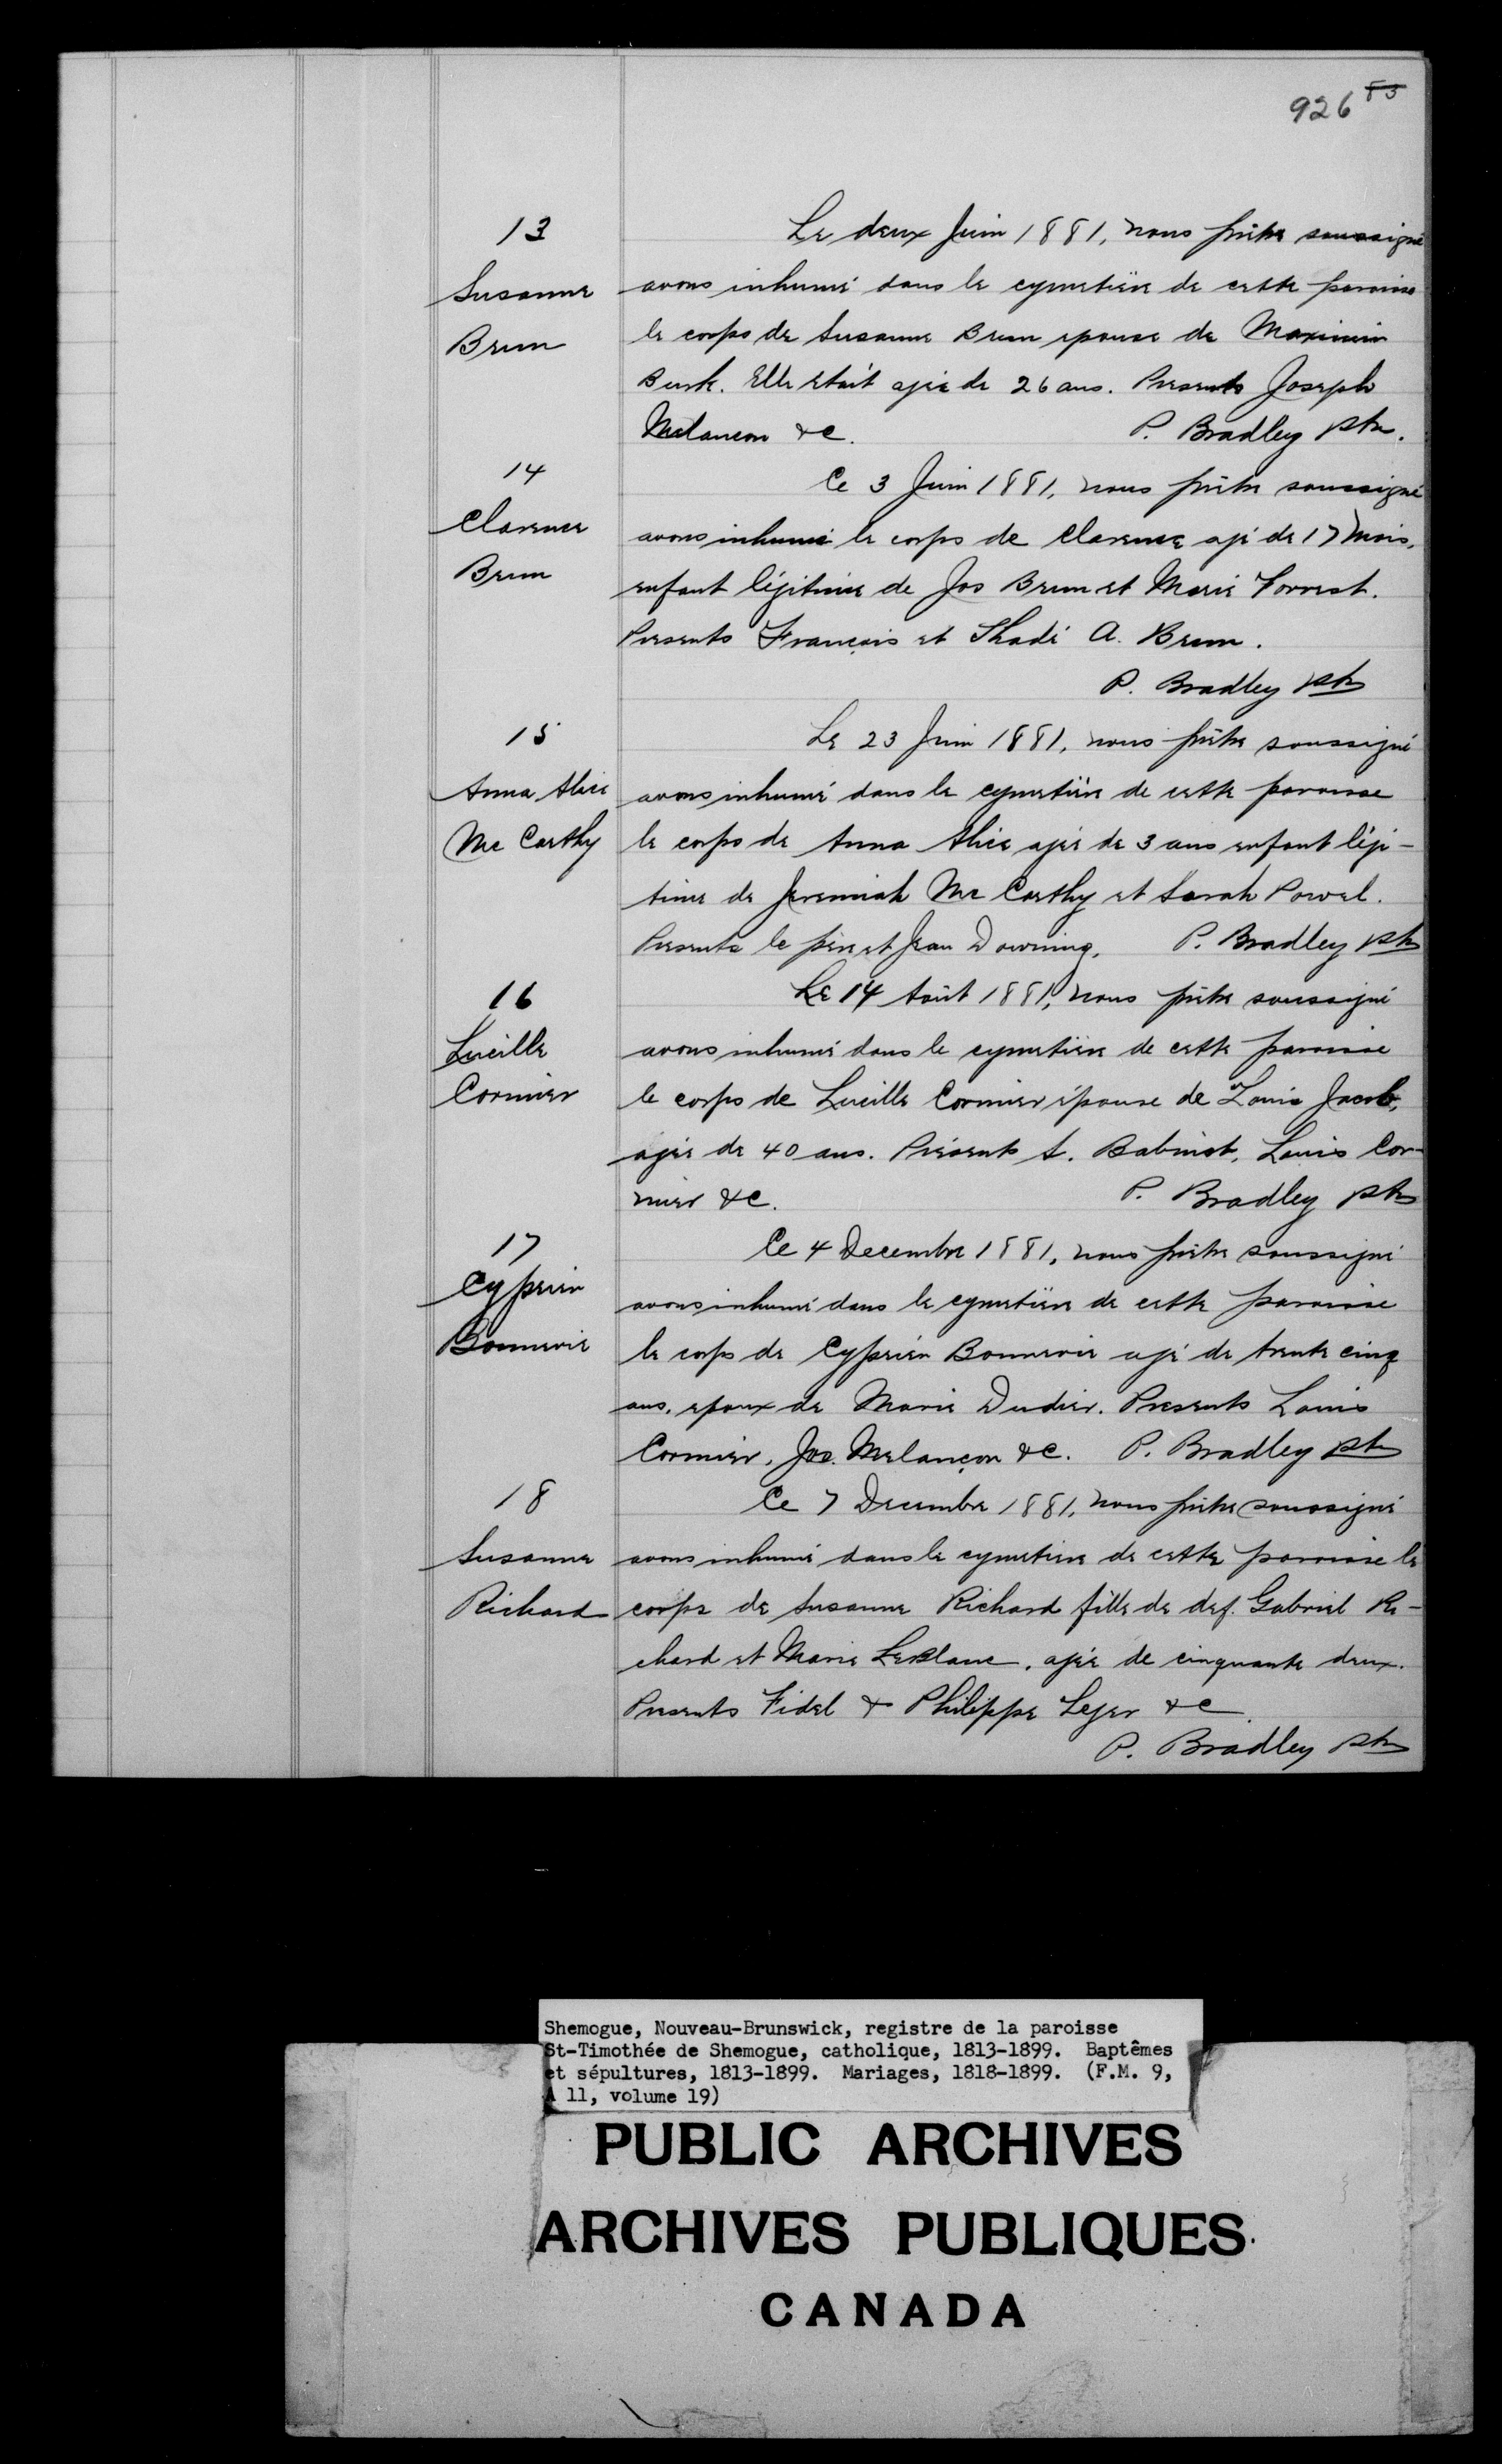 926 53
13
Susanne
Brun
Le deux Juin 1881, nous prêtre soussigné
avons inhumé dans le cymetière de cette paroisse
le corps de Susanne Brun epouse de Maximin
Burk. Elle était agée de 26 ans. Presents Joseph
Melancon &c. P. Bradley ptr.
14
Clarence
Brun
Ce 3 Juin 1881, nous prêtre soussigné
avons inhumé le corps de Clarence agé de 17 mois,
enfant légitime de Jos Brun et Marie Forrest.
Presents François et Thadé A. Brun.
P. Bradley ptr
15
Anna Alice
Mc Carthy
Le 23 Juin 1881, nous prêtre soussigné
avons inhumé dans le cymetière de cette paroisse
le corps de Anna Alice agée de 3 ans enfant légi-
time de Jeremiah Mc Carthy et Sarah Powel.
Presents le père et Jean Downing. P. Bradley ptr
16
Lucille
Cormier
Le 14 Août 1881, nous prêtre soussigné
avons inhumé dans le cymetière de cette paroisse
le corps de Lucille Cormier épouse de Louis Jacob,
agée de 40 ans. Présents A. Babinot, Louis Cor-
mier &c. P. Bradley ptr
17
Cyprien
Bonnevie
Ce 4 Decembre 1881, nous prêtre soussigné
avons inhumé dans le cymetière de cette paroisse
le corps de Cyprien Bonnevie agé de trente cinq
ans, epoux de Marie Dudier. Presents Louis
Cormier, Jos. Melançon &c. P. Bradley ptr
18
Susanne
Richard
Ce 7 Decembre 1881, nous prêtre soussigné
avons inhumé dans le cymetiere de cette paroisse le
corps de Susanne Richard fille de def. Gabriel Ri-
chard et Marie LeBlanc, agée de cinquante deux.
Presents Fidel & Philippe Leger &c.
P. Bradley ptr
Shemogue, Nouveau-Brunswick, registre de la paroisse
St-Timothée de Shemogue, catholique, 1813-1899. Baptêmes
et sépultures, 1813-1899. Mariages, 1818-1899. (F.M. 9,
A 11, volume 19)
PUBLIC ARCHIVES
ARCHIVES PUBLIQUES
CANADA